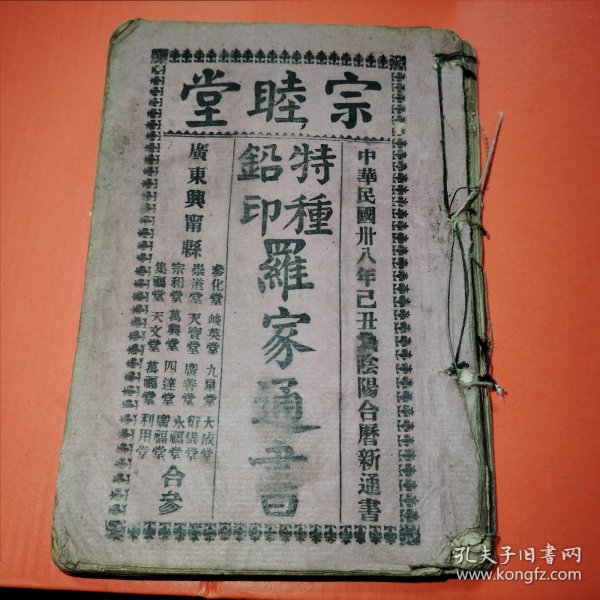 宗睦堂
中華民國卅八年己丑歲陰陽合曆新通書
特種
鉛印
羅家通書
廣東興甯縣
參化堂 峻英堂 九星堂 大成堂
崇道堂 天寶堂 廣善堂 衍儀堂
宗和堂 萬興堂 四達堂 永福堂
集福堂 天文堂 萬福堂 廣福堂
利用堂
合參
孔夫子旧书网
www.kongfz.com